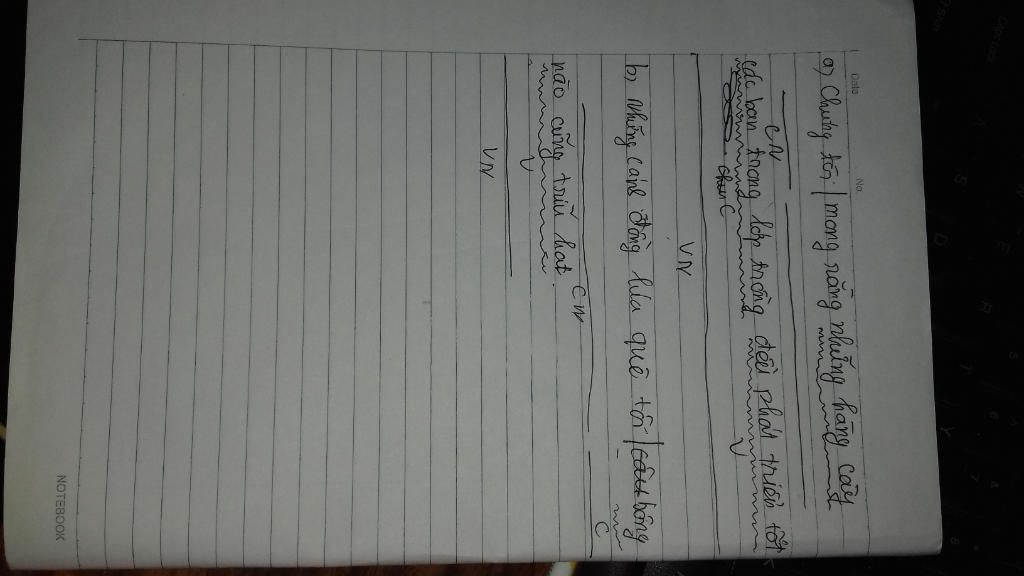 Date No.
a) Chúng tôi / mong rằng những hàng cây
CN
các bạn trong lớp trồng đều phát triển tốt
C V
VN
b) Những cánh đồng lúa quê tôi / bông
CN C
nào cũng trĩu hạt.
V
VN
NOTEBOOK